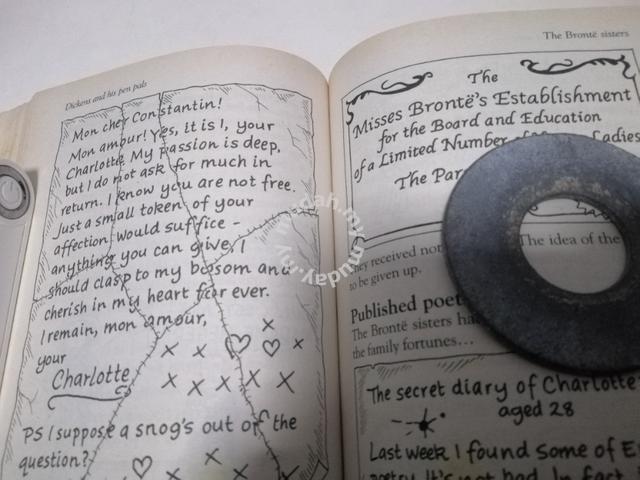 Dickens and his pen pals
Mon cher Constantin!
Mon amour! Yes, it is I, your
Charlotte. My passion is deep,
but I do not ask for much in
return. I know you are not free.
Just a small token of your
affection would suffice –
anything you can give, I
should clasp to my bosom and
cherish in my heart for ever.
I remain, mon amour,
your
Charlotte
PS I suppose a snog's out of the
question?
The Brontë sisters
The
Misses Brontë's Establishment
for the Board and Education
of a Limited Number of Ladies
The
They received not The idea of the
to be given up.
Published
The Brontë sisters
the family fortunes…
The secret diary of Charlotte
aged 28
Last week I found some of
poetry. It's not bad. In fact
muday.my